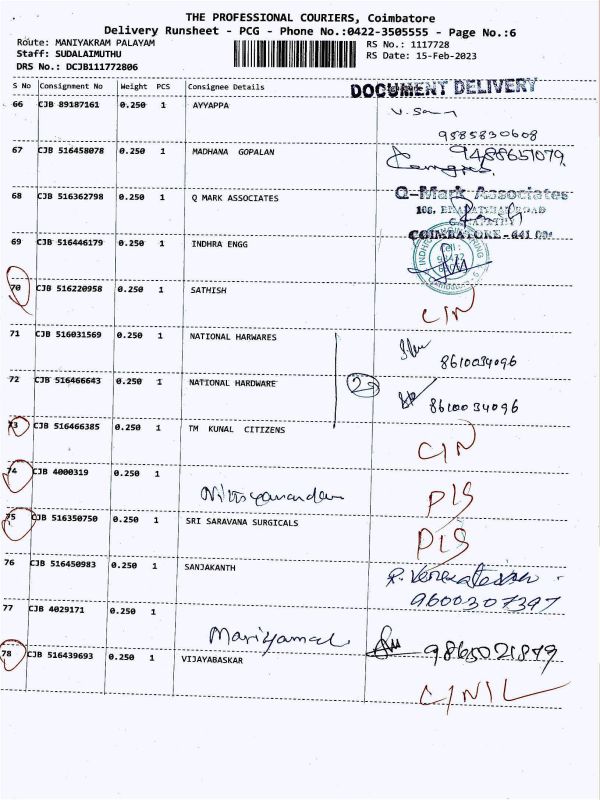 THE PROFESSIONAL COURIERS, Coimbatore
Delivery Runsheet - PCG - Phone No.:0422-3505555 - Page No.:6
Route: MANIYAKRAM PALAYAM RS No.: 1117728
Staff: SUDALAIMUTHU RS Date: 15-Feb-2023
DRS No.: DCJB111772806
S No Consignment No Weight PCS Consignee Details DOCUMENT DELIVERY
66 CJB 89187161 0.250 1 AYYAPPA
9585830608
67 CJB 516458078 0.250 1 MADHANA GOPALAN 9488651079
68 CJB 516362798 0.250 1 Q MARK ASSOCIATES Q-Mark Associates
COIMBATORE - 641 00
69 CJB 516446179 0.250 1 INDHRA ENGG
70 CJB 516220958 0.250 1 SATHISH C/N
71 CJB 516031569 0.250 1 NATIONAL HARWARES
8610034096
72 CJB 516466643 0.250 1 NATIONAL HARDWARE 8610034096
73 CJB 516466385 0.250 1 TM KUNAL CITIZENS C/N
74 CJB 4000319 0.250 1
Nithyanandam D/S
75 CJB 516350750 0.250 1 SRI SARAVANA SURGICALS D/S
76 CJB 516450983 0.250 1 SANJAKANTH
9600307397
77 CJB 4029171 0.250 1
Mariyamal 9865021879
78 CJB 516439693 0.250 1 VIJAYABASKAR